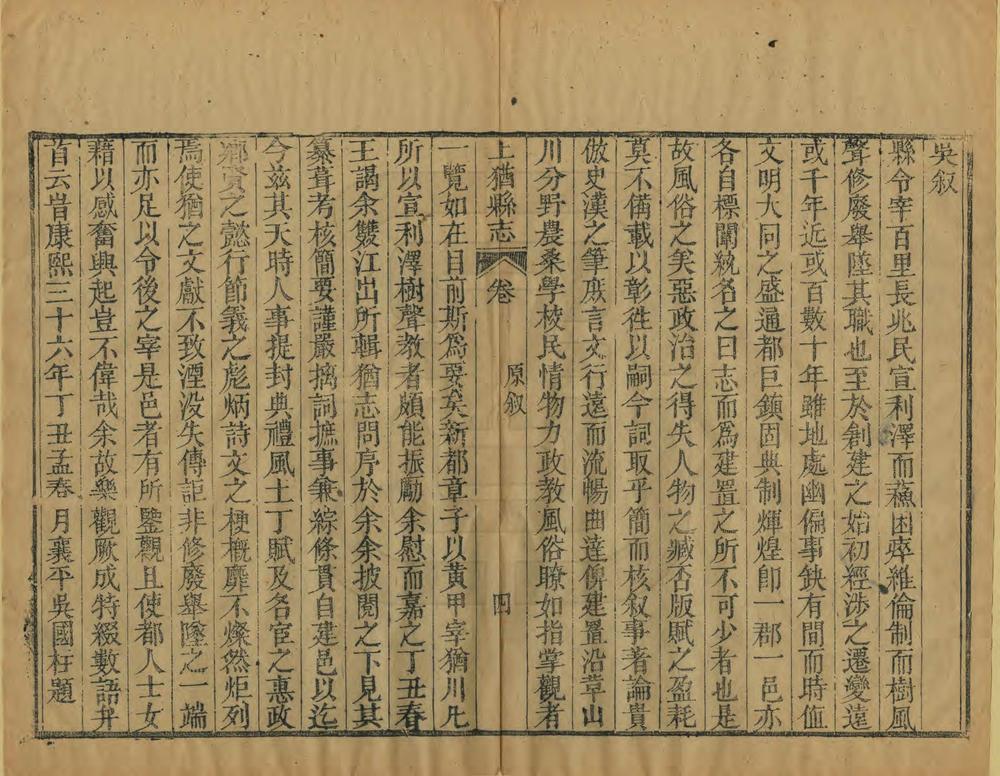 吳叙
縣令宰百里長兆民宣利澤而蘓困瘁維倫制而樹風
聲修廢舉墜其職也至於創建之始初經涉之遷變遠
或千年近或百數十年雖地處幽偏事鈌有間而時值
文明大同之盛通都巨鎮固典制煇煌卽一郡一邑亦
各自標闡統名之曰志而爲建置之所不可少者也是
故風俗之美惡政治之得失人物之臧否版賦之盈耗
莫不備載以彰徃以嗣今詞取乎簡而核叙事著論貴
倣史漢之筆庶言文行遠而流暢曲達俾建置沿革山
川分野農桑學校民情物力政教風俗瞭如指掌觀者
上猶縣志 卷 原叙 四
一覽如在目前斯爲要矣新都章子以黃甲宰猶川凢
所以宣利澤樹聲教者頗能振勵余慰而嘉之丁丑春
王謁余雙江出所輯猶志問序於余余披閱之下見其
纂葺考核簡要謹嚴摛詞摭事兼綜條貫自建邑以迄
今兹其天時人事提封典禮風土丁賦及名宦之惠政
鄉賢之懿行節義之彪炳詩文之梗槪靡不燦然炬列
焉使猶之文獻不致湮没失傳詎非修廢舉墜之一端
而亦足以令後之宰是邑者有所鑒觀且使都人士女
藉以感奮興起豈不偉哉余故樂觀厥成特綴數語弁
首云旹康熙三十六年丁丑孟春月襄平吳國柱題